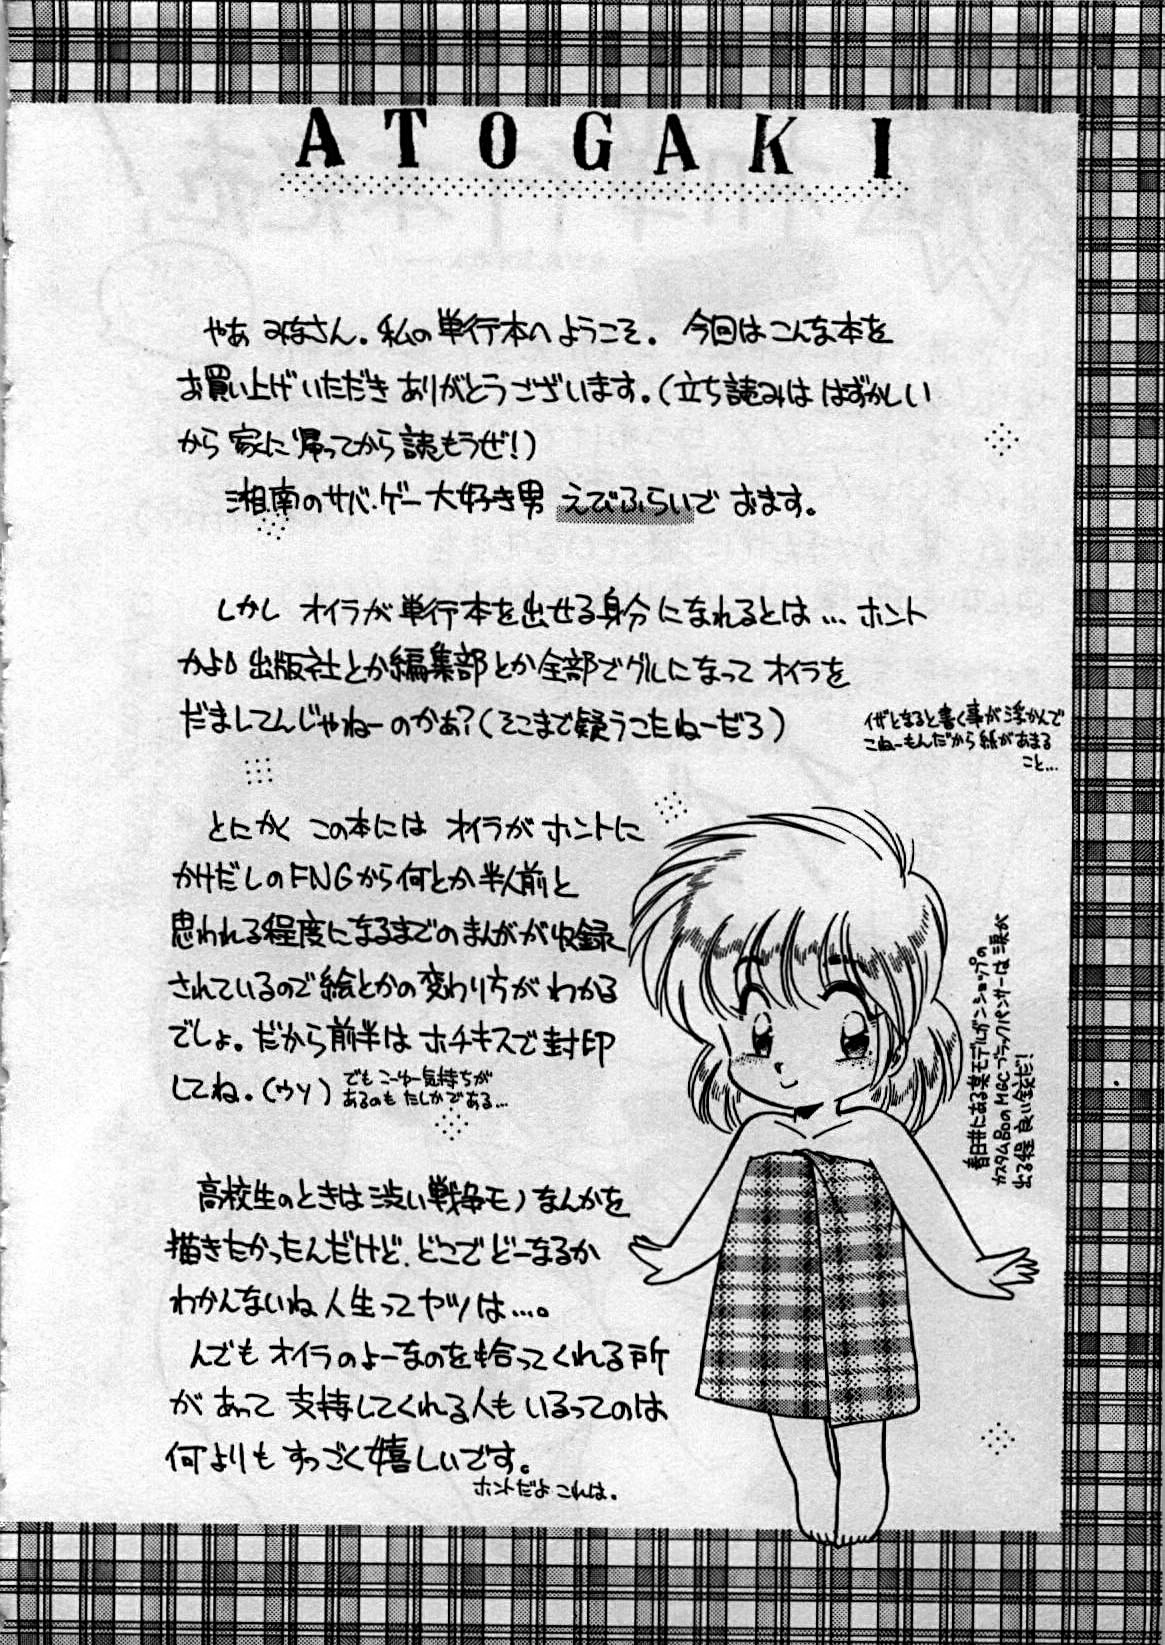 ATOGAKI
やあ みなさん。私の単行本へようこそ。 今回はこんな本を
お買い上げいただき ありがとうございます。(立ち読みは はずかしい
から 家に帰ってから読もうぜ!)
湘南のサバ・ゲー大好き男 えびふらいで おます。
しかし オイラが単行本を出せる身分になれるとは… ホント
かよ 出版社とか編集部とか全部でグルになって オイラを
だましてんじゃねーのかぁ?(そこまで疑うこたねーだろ)
イザとなると書く事が浮かんで
こねーもんだから紙があまる
こと…
とにかく この本には オイラが ホントに
かけだしのFNGから何とか半人前と
思われる程度になるまでのまんがが収録
されているので絵とかの変わり方が わかる
でしょ。だから前半は ホチキスで封印
してね。(ウソ)
でも こーゆー気持ちが
あるのも たしかである…
高校生のときは渋い戦争モノなんかを
描きたかったんだけど、どこでどーなるか
わかんないね 人生ってヤツは…。
んでも オイラのよーなのを拾ってくれる所
があって 支持してくれる人も いるってのは
何よりも すっごく嬉しいです。
ホントだよ これは。
春日井にある某モデルガンショップの
カスタム80のMGCブラックパンサーは 涙が
出る程 良い銃だ!